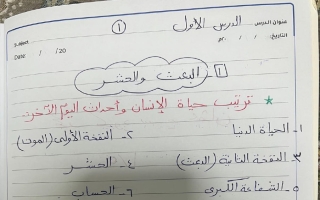 عنوان الدرس الدرس الأول ①
التاريخ: / / ٢٠
Subject
Date: / / 20
١- البعث والحشر
★ ترتيب حياة الإنسان وأحداث اليوم الآخر:
١- الحياة الدنيا ٢- النفخة الأولى (الموت)
٣- النفخة الثانية (البعث) ٤- الحشر
٥- الشفاعة الكبرى ٦- الحساب